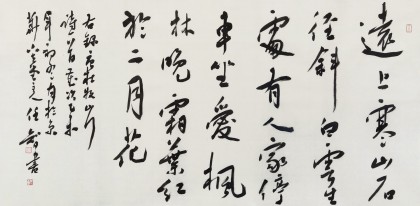 遠上寒山石
径斜白雲生
處有人家停
車坐愛楓
林晚霜葉紅
於二月花
右録唐杜牧山行
詩一首歲次